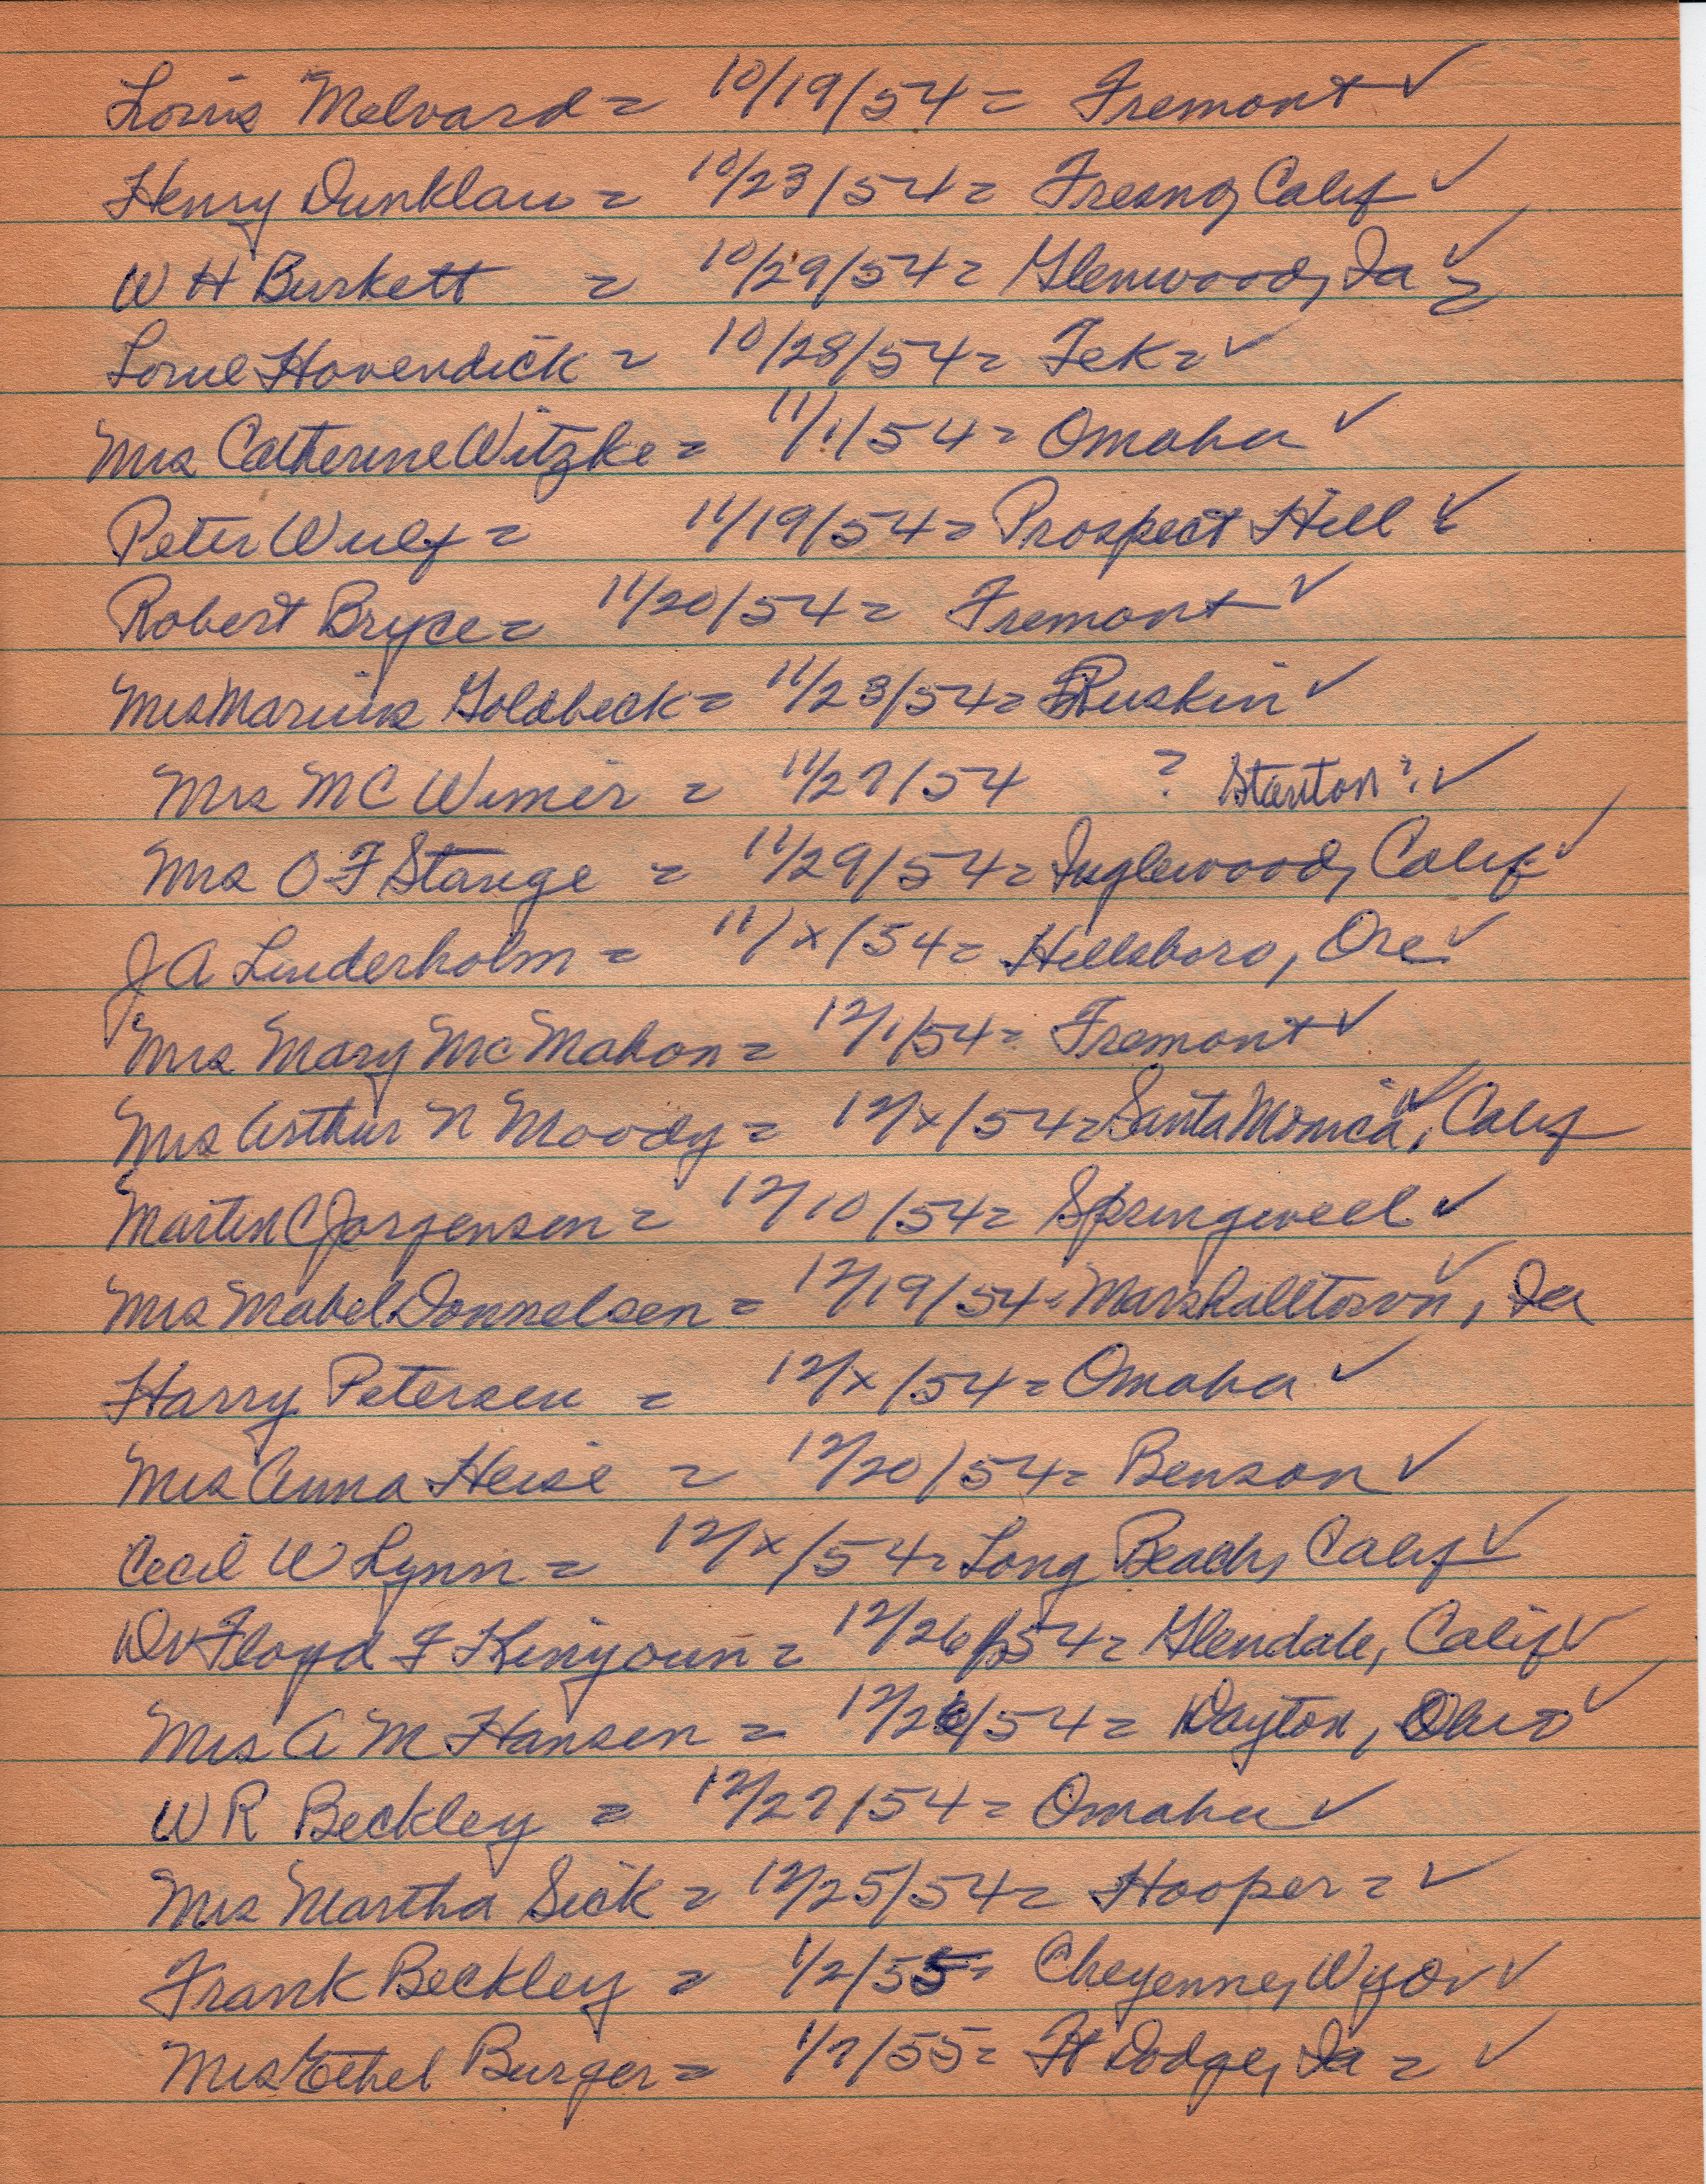 Louis Melvard = 10/19/54 = Fremont ✓
Henry Dunklau = 10/23/54 = Fresno, Calif ✓
W H Burkett = 10/29/54 = Glenwood, Ia ✓ =
Lorne Hovendick = 10/28/54 = Tek = ✓
Mrs Catherine Witzke = 11/1/54 = Omaha ✓
Peter Wulf = 11/19/54 = Prospect Hill ✓
Robert Bryce = 11/20/54 = Fremont ✓
Mrs Marius Goldbeck = 11/23/54 = Ruskin ✓
Mrs M C Wimer = 11/27/54 ? Stanton ? ✓
Mrs O F Stange = 11/29/54 = Inglewood, Calif ✓
J A Linderholm = 11/x/54 = Hillsboro, Ore ✓
Mrs Mary McMahon = 12/1/54 = Fremont ✓
Mrs Arthur N Moody = 12/x/54 = Santa Monica, Calif ✓
Martin C Jorgensen = 12/10/54 = Springwell ✓
Mrs Mabel Donnelsen = 12/19/54 = Marshalltown, Ia ✓
Harry Petersen = 12/x/54 = Omaha ✓
Mrs Anna Heise = 12/20/54 = Benson ✓
Cecil W Lynn = 12/x/54 = Long Beach, Calif ✓
Dr Floyd F Kinyoun = 12/26/54 = Glendale, Calif ✓
Mrs A M Hansen = 12/26/54 = Dayton, Ohio ✓
W R Beckley = 12/27/54 = Omaha ✓
Mrs Martha Sick = 12/25/54 = Hooper = ✓
Frank Beckley = 1/2/55 = Cheyenne, Wyo ✓ ✓
Mrs Ethel Burger = 1/7/55 = Ft Dodge, Ia = ✓